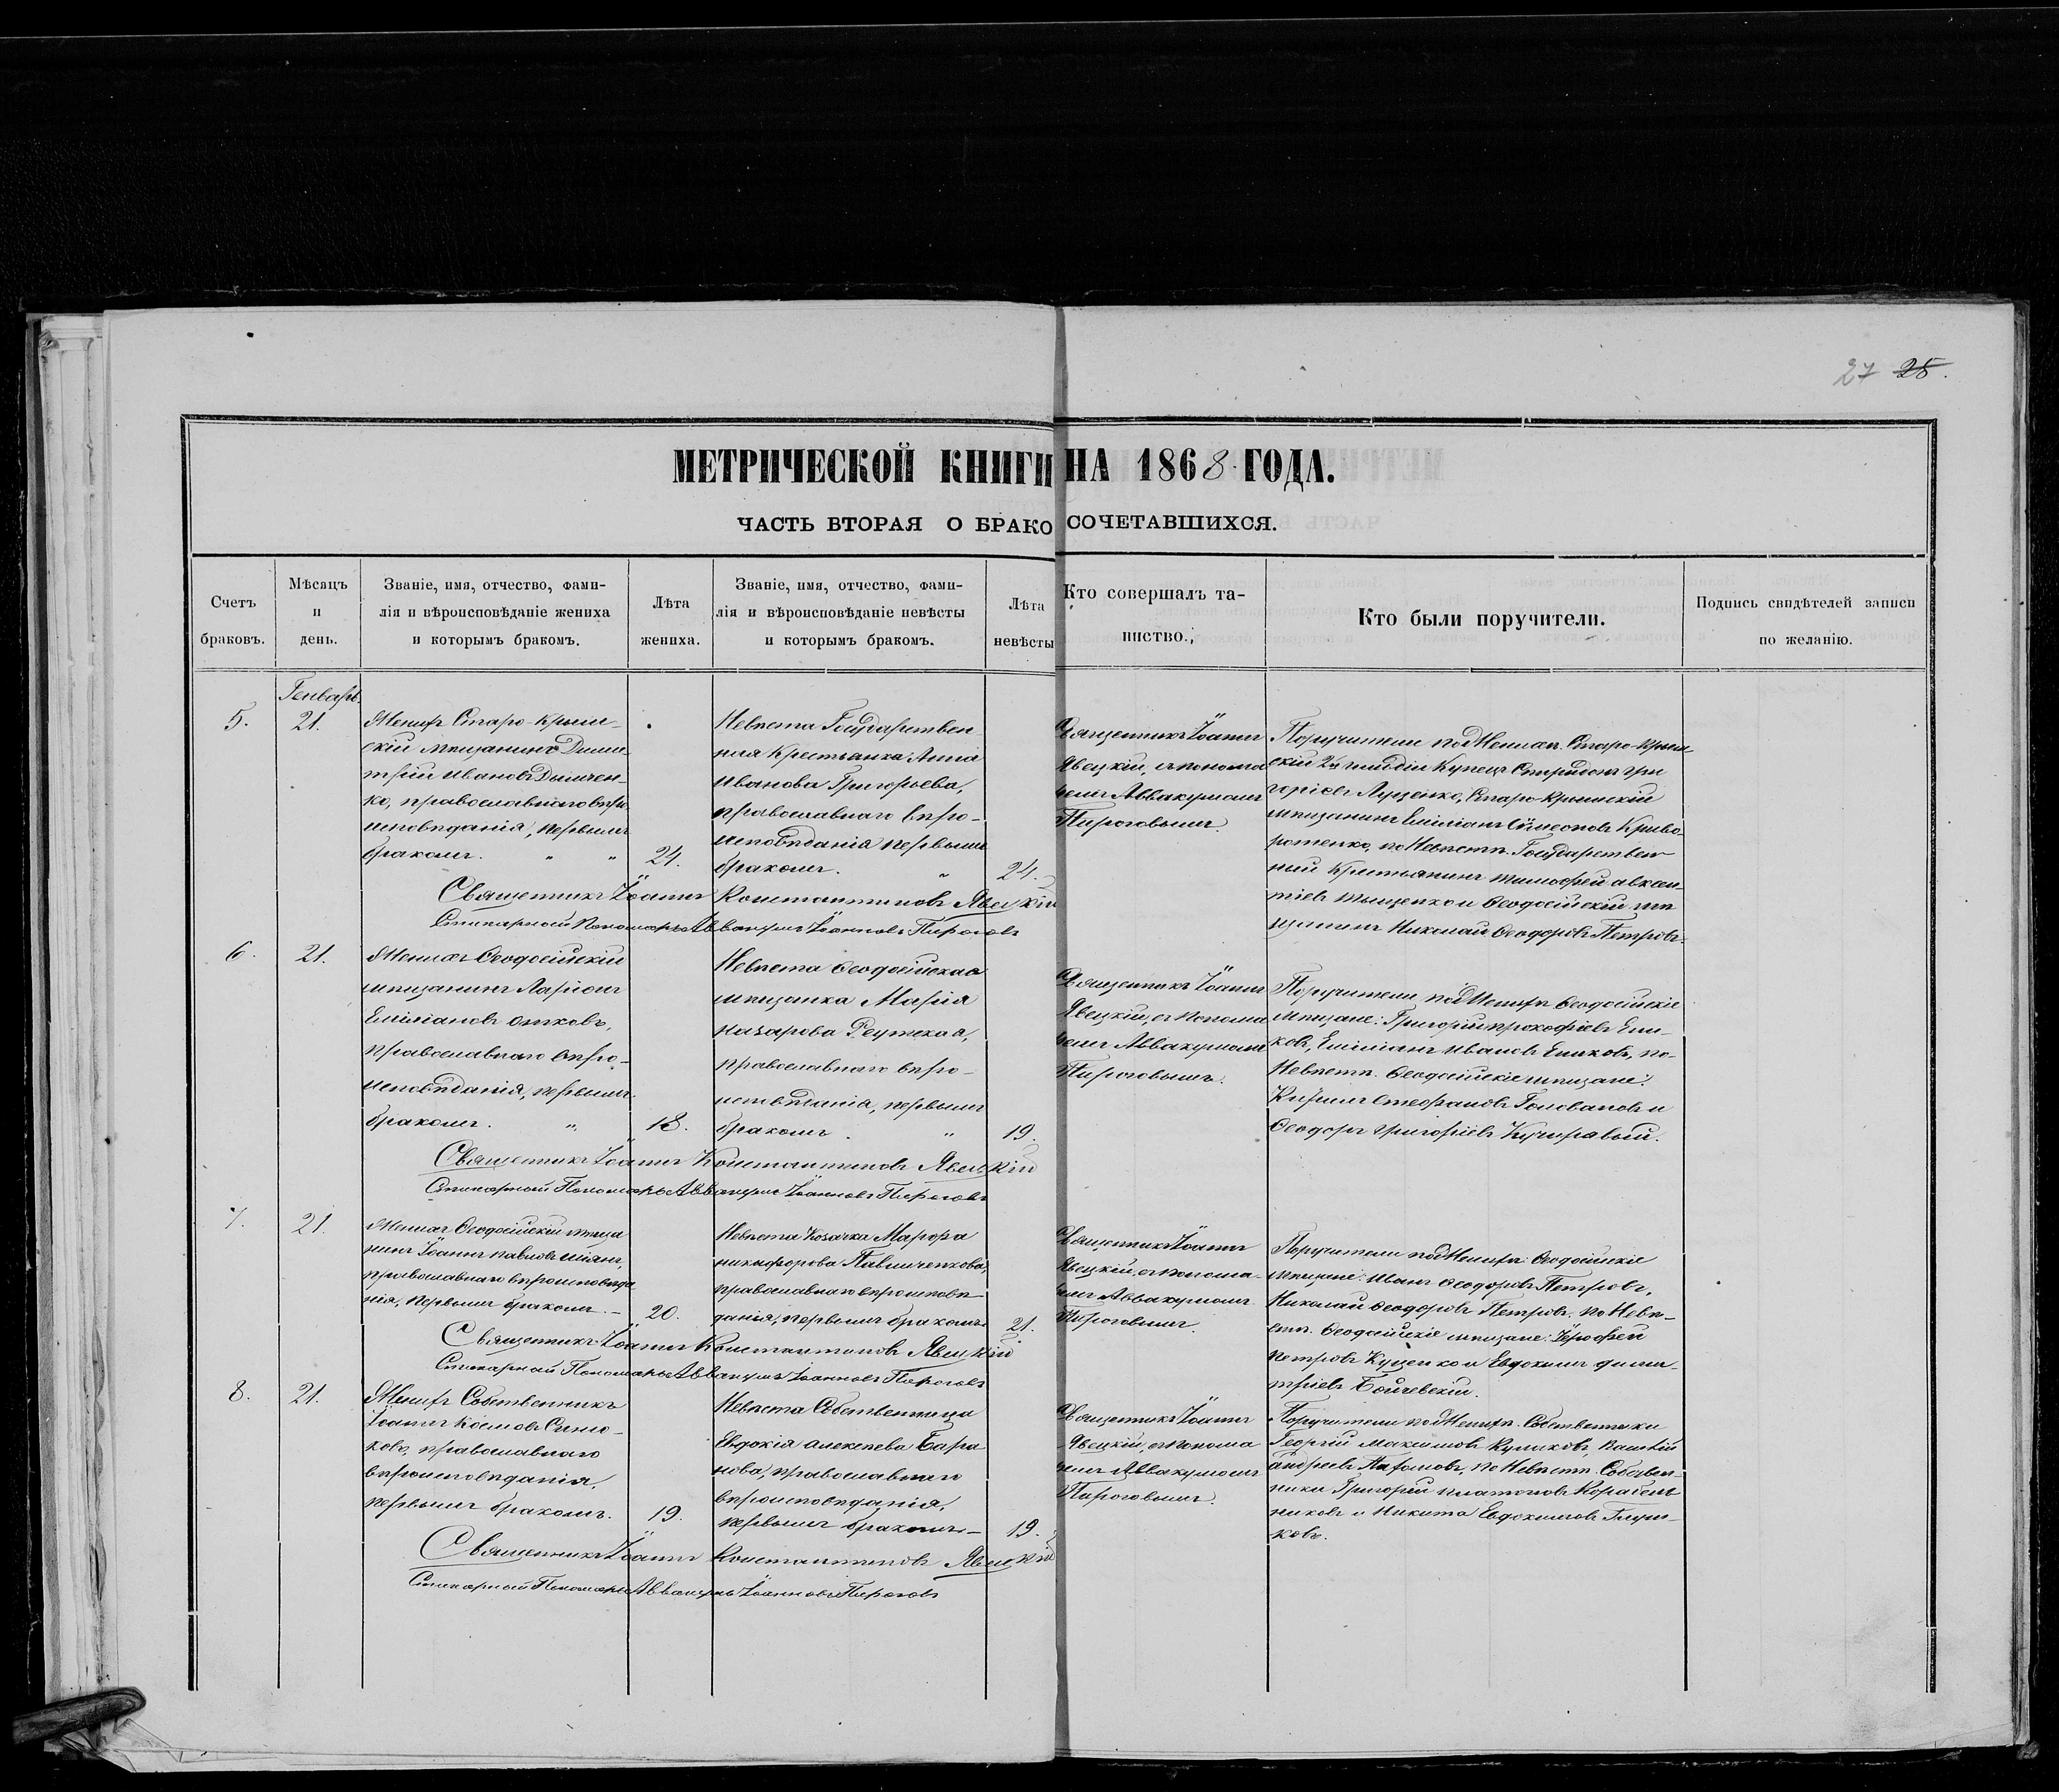 27 25.
МЕТРИЧЕСКОЙ КНИГИ НА 1868 ГОДА.
ЧАСТЬ ВТОРАЯ О БРАКОСОЧЕТАВШИХСЯ.
Счетъ
браковъ.
Мѣсяцъ
и
день.
Званіе, имя, отчество, фами-
лія и вѣроисповѣданіе жениха
и которымъ бракомъ.
Лѣта
жениха.
Званіе, имя, отчество, фами-
лія и вѣроисповѣданіе невѣсты
и которымъ бракомъ.
Лѣта
невѣсты
Кто совершалъ та-
инство.
Кто были поручители.
Подпись свидѣтелей записи
по желанію.
Генварь
5.
21.
Женихъ Старо-Крым-
скій мѣщанинъ Дими-
трій Ивановъ Димчен-
ко, православнаго вѣро
исповѣданія, первымъ
бракомъ. " "
24.
Невѣста Государствен
ная Крестьянка Анна
Иванова Григорьева,
православнаго вѣро-
исповѣданія первымъ
бракомъ. "
24.
Священникъ Іоаннъ
Явецкій, съ понома
ремъ Аввакумомъ
Пироговымъ.
Поручители по Женихѣ. Старо-Крым-
скій 2й гильдіи Купецъ Спиридонъ Гри
горіевъ Луценко, Старо-Крымскій
мѣщанинъ Емиліанъ Симеоновъ Криво
ротенко, по Невѣстѣ. Государствен-
ный Крестьянинъ Тимофей Авксен-
тіевъ Тищенко и Ѳеодосійскій мѣ
щанинъ Николай Ѳеодоровъ Петровъ.
Священникъ Іоаннъ Константиновъ Явецкій
Стихарный Пономарь Аввакумъ Іоанновъ Пироговъ
6.
21.
Женихъ Ѳеодосійскій
мѣщанинъ Ларіонъ
Емиліановъ
православнаго вѣро-
исповѣданія, первымъ
бракомъ. "
18.
Невѣста Ѳеодосійская
мѣщанка Марія
Назарова Реутская,
православнаго вѣро-
исповѣданія, первымъ
бракомъ. "
19.
Священникъ Іоаннъ
Явецкій, съ понома
ремъ Аввакумомъ
Пироговымъ.
Поручители по Женихѣ Ѳеодосійскіе
мѣщане: Григорій Прокофіевъ Еми-
ковъ, Емиліанъ Ивановъ Емиковъ, по
Невѣстѣ. Ѳеодосійскіе мѣщане:
Кирилъ Стефановъ Головановъ и
Ѳеодоръ Григоріевъ Кучерявый.
Священникъ Іоаннъ Константиновъ Явецкій
Стихарный Пономарь Аввакумъ Іоанновъ Пироговъ
7.
21.
Женихъ Ѳеодосійскій мѣща
нинъ Іоаннъ Павловъ
православнаго вѣроисповѣда
нія, первымъ бракомъ. -
20.
Невѣста Козачка Марфа
Никифорова Павличенкова,
православнаго вѣроисповѣ-
данія, первымъ бракомъ
21.
Священникъ Іоаннъ
Явецкій, съ понома-
ремъ Аввакумомъ
Пироговымъ.
Поручители по Женихѣ: Ѳеодосійскіе
мѣщане: Иванъ Ѳеодоровъ Петровъ,
Николай Ѳеодоровъ Петровъ, по Невѣ-
стѣ. Ѳеодосійскіе мѣщане: Ерофей
Петровъ Куценко и Евдокимъ Дими-
тріевъ Бойчевскій.
Священникъ Іоаннъ Константиновъ Явецкій
Стихарный Пономарь Аввакумъ Іоанновъ Пироговъ
8.
21.
Женихъ Собственникъ
Іоаннъ Космовъ
православнаго
вѣроисповѣданія,
первымъ бракомъ.
19.
Невѣста Собственница
Евдокія Алексѣева Бара
нова, православнаго
вѣроисповѣданія,
первымъ бракомъ. -
19.
Священникъ Іоаннъ
Явецкій, съ понома
ремъ Аввакумомъ
Пироговымъ.
Поручители по Женихѣ. Собственники
Георгій Максимовъ Куликовъ, Василій
Андреевъ по Невѣстѣ. Собствен-
ники Григорій Платоновъ Корабель
никовъ и Никита Евдокимовъ Глуш-
ковъ.
Священникъ Іоаннъ Константиновъ Явецкій
Стихарный Пономарь Аввакумъ Іоанновъ Пироговъ